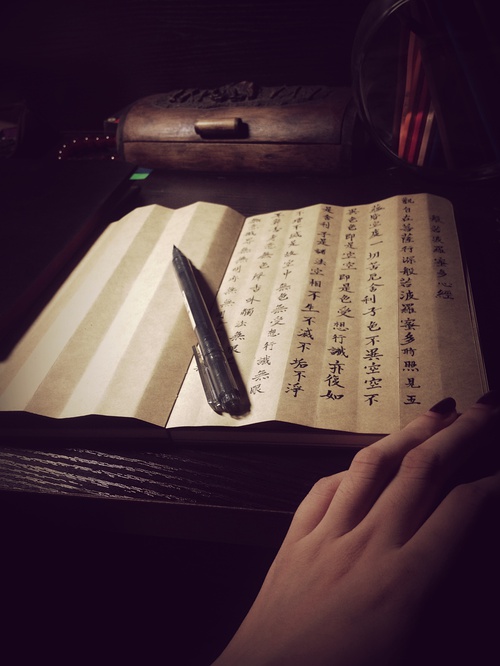 般若波羅蜜多心經
觀自在菩薩行深般若波羅蜜多時照見五
蘊皆空度一切苦厄舍利子色不異空空不
異色色即是空空即是色受想行識亦復如
是舍利子是諸法空相不生不滅不垢不淨
不增不減是故空中無色無受想行識無眼
無色聲香味觸法無眼